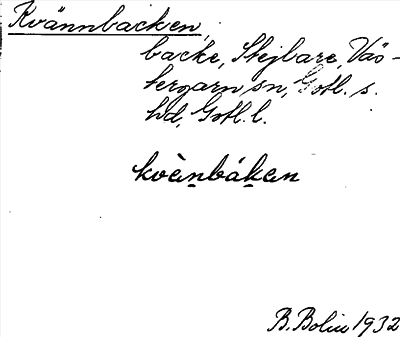 Kvännbacken,
backe, Stejlare, Väs-
tergarn sn, Gotl. s.
hd, Gotl. l.
kvὲnbákɛn
B. Bolin 1932